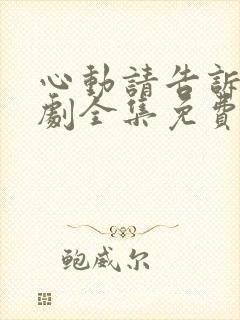 心動請告訴
劇全集免費
鲍威尔